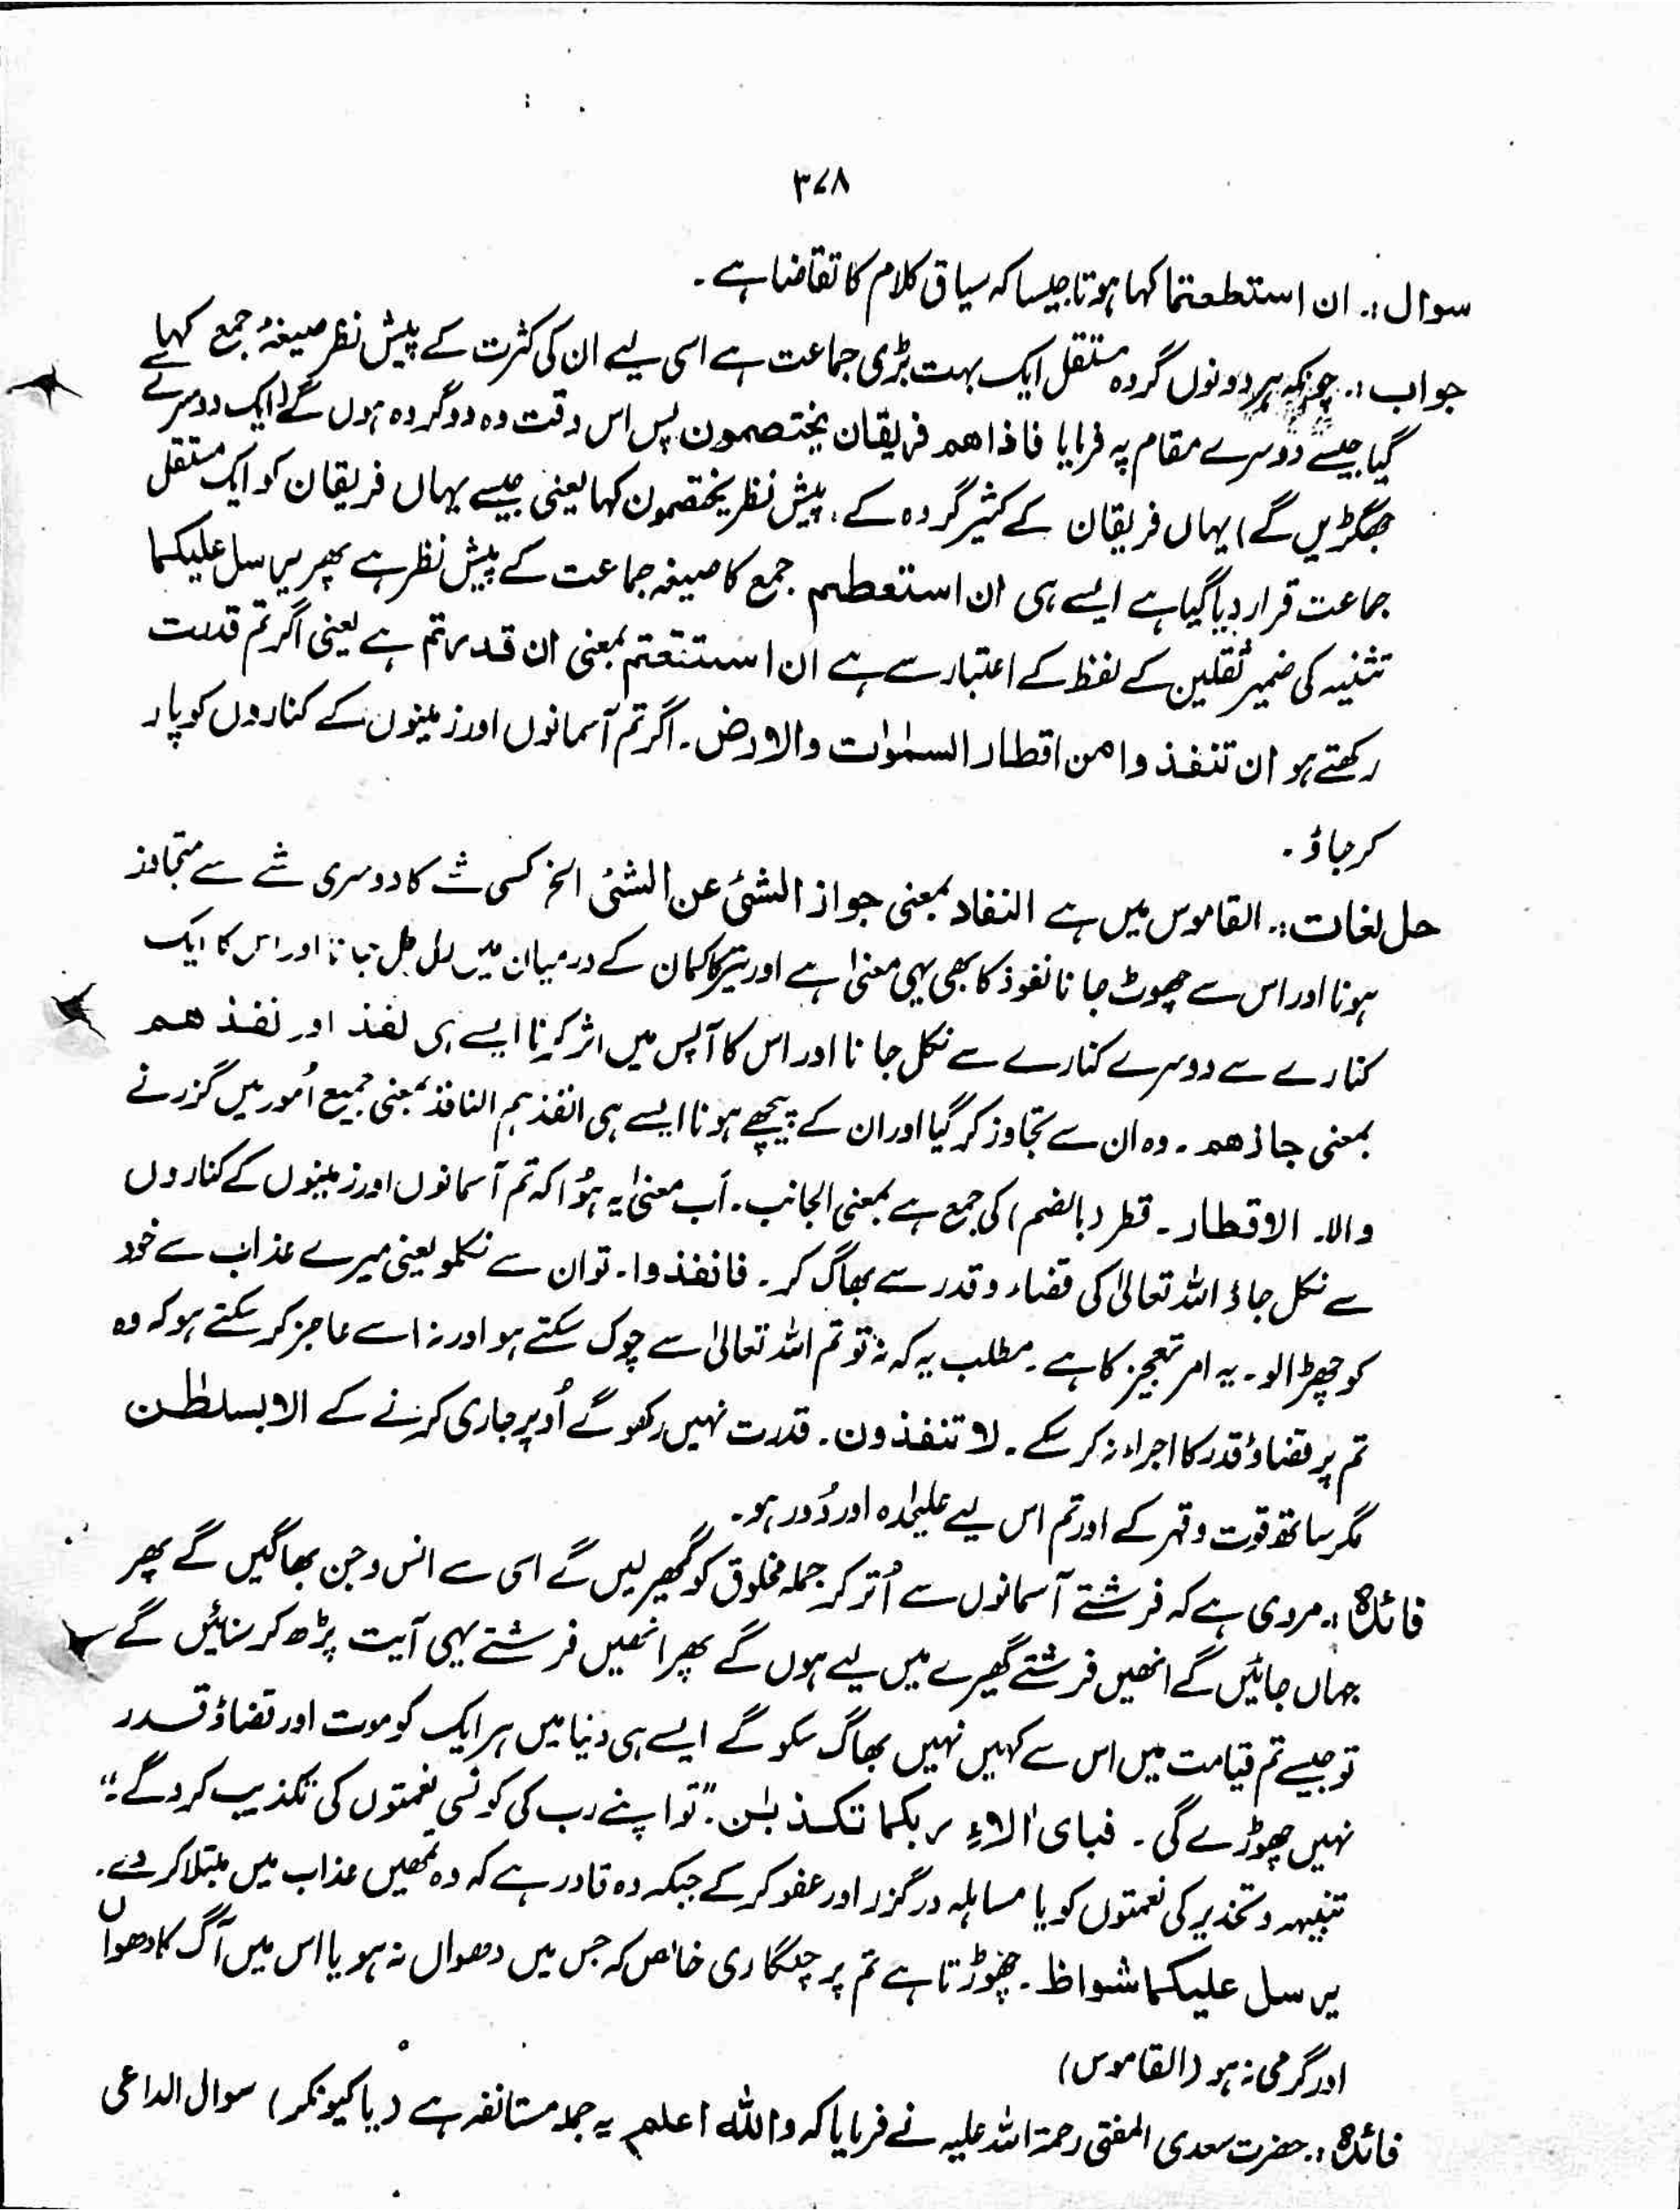 ۳۷۸
سوال :۔ ان استطعتما کہا ہوتا جیسا کہ سیاق کلام کا تقاضا ہے ۔
جواب :۔ چونکہ ہر دونوں گروہ مستقل ایک بہت بڑی جماعت ہے اسی لیے ان کی کثرت کے پیش نظر صیغۂ جمع کہا
گیا جیسے دوسرے مقام پہ فرمایا فاذا ھم فریقان یختصمون پس اس وقت وہ دو گروہ ہوں گے (ایک دوسرے سے
جھگڑیں گے) یہاں فریقان کے کثیر گروہ کے پیش نظر یختصمون کہا یعنی جیسے یہاں فریقان کو ایک مستقل
جماعت قرار دیا گیا ہے ایسے ہی ان استعطم جمع کا صیغہ جماعت کے پیش نظر ہے پھر یرسل علیکما
تثنیہ کی ضمیر ثقلین کے لفظ کے اعتبار سے ہے ان استتعتم بمعنی ان قدرتم ہے یعنی اگر تم قدرت
رکھتے ہو ان تنفذوا من اقطار السمٰوٰت والارض ۔ اگر تم آسمانوں اور زمینوں کے کناروں کو پار
کر جاؤ ۔
حل لغات :۔ القاموس میں ہے النفاد بمعنی جواز الشئ عن الشئ الخ کسی شے کا دوسری شے سے متجاوز
ہونا اور اس سے چھوٹ جانا نفوذ کا بھی یہی معنیٰ ہے اور تیر کا کمان کے درمیان میں جانا اور اس کا ایک
کنارے سے دوسرے کنارے سے نکل جانا اور اس کا آپس میں اثر کرنا ایسے ہی نفذ اور نفذھم
بمعنی جازھم ۔ وہ ان سے تجاوز کر گیا اور ان کے پیچھے ہونا ایسے ہی انفذہم النافذ بمعنی جمیع اُمور میں گزرنے
والا۔ الاقطار ۔ قطر (بالضم) کی جمع ہے بمعنی الجانب ۔ اَب معنیٰ یہ ہُوا کہ تم آسمانوں اور زمینوں کے کناروں
سے نکل جاؤ اللہ تعالیٰ کی قضاء و قدر سے بھاگ کر ۔ فانفذوا ۔ تو ان سے نکلو یعنی میرے عذاب سے خود
کو چھڑا لو ۔ یہ امر تعجیز کا ہے ۔ مطلب یہ کہ نہ تو تم اللہ تعالیٰ سے چوک سکتے ہو اور نہ اسے عاجز کر سکتے ہو کہ وہ
تم پر قضاؤ قدر کا اجراء نہ کر سکے ۔ لا تنفذون ۔ قدرت نہیں رکھو گے اُوپر جاری کرنے کے الا بسلطٰن
مگر ساتھ قوت و قہر کے اور تم اس لیے علیحٰدہ اور دُور ہو ۔
فائدہ :۔ مروی ہے کہ فرشتے آسمانوں سے اُتر کر جملہ مخلوق کو گھیر لیں گے اسی سے انس و جن بھاگیں گے پھر
جہاں جائیں گے انھیں فرشتے گھیرے میں لیے ہوں گے پھر انھیں فرشتے یہی آیت پڑھ کر سنائیں گے
تو جیسے تم قیامت میں اس سے کہیں نہیں بھاگ سکو گے ایسے ہی دنیا میں ہر ایک کو موت اور قضاؤ قدر
نہیں چھوڑے گی ۔ فبای اٰلاءِ ربکما تکذبٰن ۔ ”تو اپنے رب کی کونسی نعمتوں کی تکذیب کرو گے“
تنبیہہ و تحذیر کی نعمتوں کو یا مساہلہ درگزر اور عفو کر کے جبکہ وہ قادر ہے کہ وہ تمھیں عذاب میں مبتلا کر دے۔
یرسل علیکما شواظ ۔ چھوڑتا ہے تم پر چنگاری خالص کہ جس میں دھواں نہ ہو یا اس میں آگ کا دھواں
اور گرمی نہ ہو (القاموس)
فائدہ :۔ حضرت سعدی المفتی رحمۃ اللہ علیہ نے فرمایا کہ واللہ اعلم یہ جملہ مستانفہ ہے (یا کیونکر) سوال الداعی